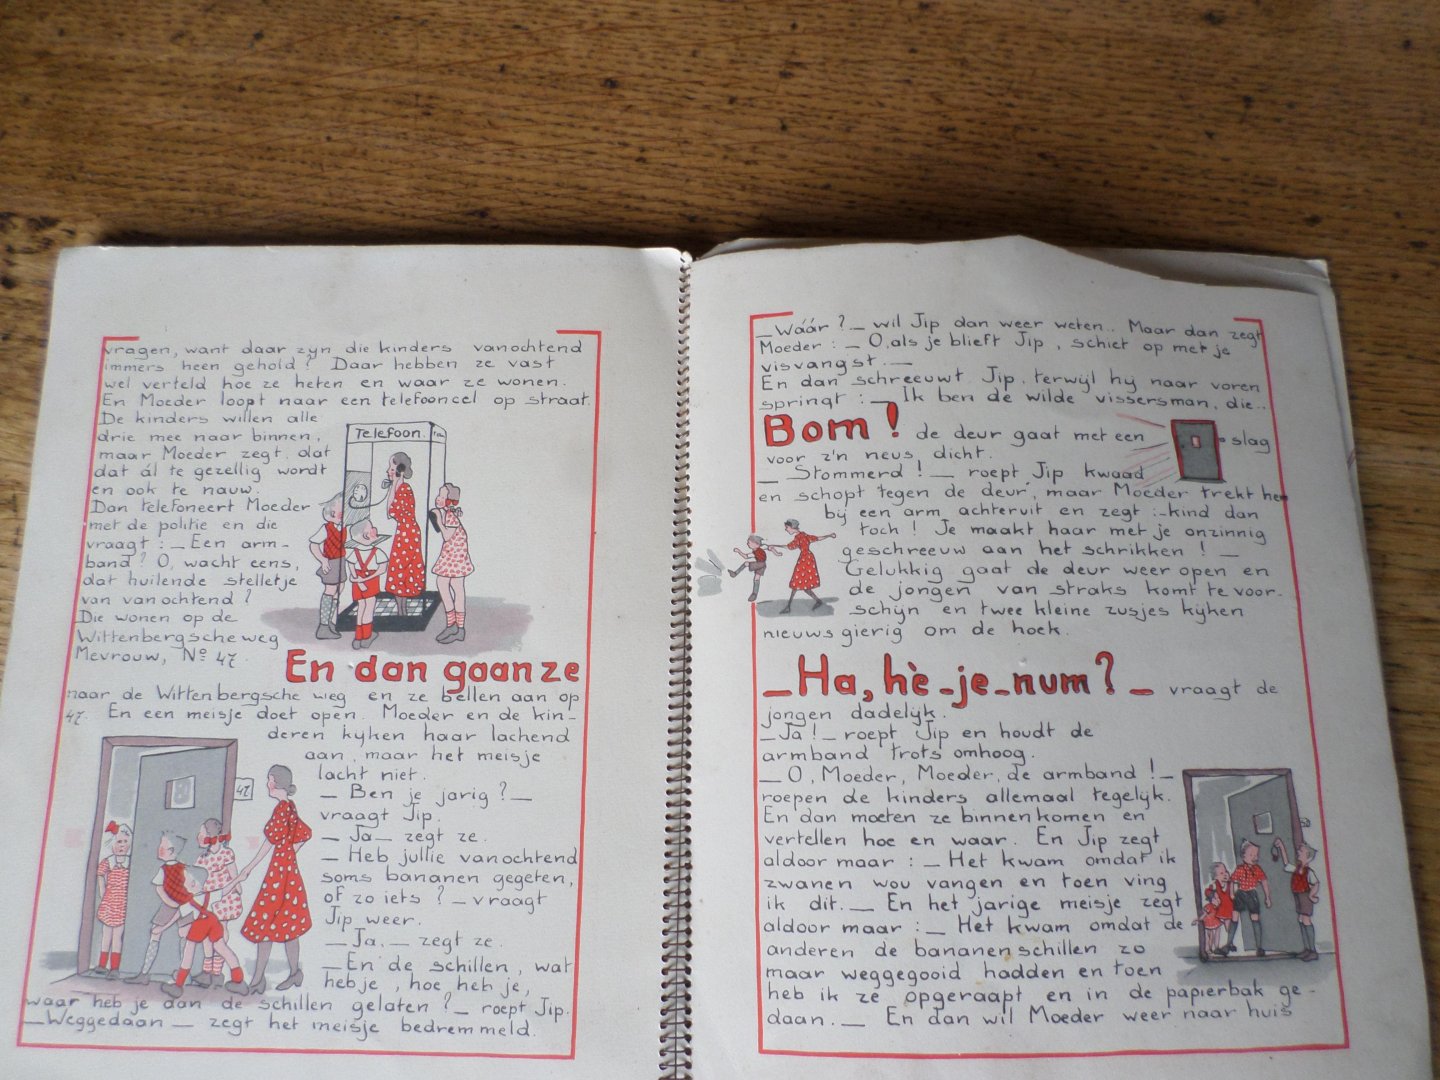 vragen, want daar zyn die kinders vanochtend
immers heen gehold! Daar hebben ze vast
wel verteld hoe ze heten en waar ze wonen.
En Moeder loopt naar een telefooncel op straat.
De kinders willen alle
drie mee naar binnen,
maar Moeder zegt, dat
dat ál te gezellig wordt
en ook te nauw.
Dan telefoneert Moeder
met de politie en die
vraagt: _ Een arm-
band? O, wacht eens,
dat huilende stelletje
van vanochtend?
Die wonen op de
Wittenbergsche weg
Mevrouw, No 47.
Telefoon.
En dan gaan ze
naar de Wittenbergsche weg en ze bellen aan op
47. En een meisje doet open. Moeder en de kin-
deren kyken haar lachend
aan, maar het meisje
lacht niet.
_ Ben je jarig? _
vraagt Jip.
_ Ja _ zegt ze.
_ Heb jullie vanochtend
soms bananen gegeten,
of zo iets? _ vraagt
Jip weer.
_ Ja. _ zegt ze.
_ En de schillen, wat
heb je, hoe heb je,
waar heb je dan de schillen gelaten? _ roept Jip.
_ Weggedaan _ zegt het meisje bedremmeld.
47
_ Wáár? _ wil Jip dan weer weten.. Maar dan zegt
Moeder: _ O, als je blieft Jip, schiet op met je
visvangst. _
En dan schreeuwt Jip, terwyl hy naar voren
springt: _ Ik ben de wilde vissersman, die..
Bom! de deur gaat met een slag
voor z'n neus dicht.
_ Stommerd! _ roept Jip kwaad
en schopt tegen de deur, maar Moeder trekt hem
by een arm achteruit en zegt: _ kind dan
toch! Je maakt haar met je onzinnig
geschreeuw aan het schrikken! _
Gelukkig gaat de deur weer open en
de jongen van straks komt te voor-
schyn en twee kleine zusjes kyken
nieuwsgierig om de hoek.
_ Ha, hè-je-num? _ vraagt de
jongen dadelyk.
_ Ja! _ roept Jip en houdt de
armband trots omhoog.
_ O, Moeder, Moeder, de armband! _
roepen de kinders allemaal tegelyk.
En dan moeten ze binnenkomen en
vertellen hoe en waar. En Jip zegt
aldoor maar: _ Het kwam omdat ik
zwanen wou vangen en toen ving
ik dit. _ En het jarige meisje zegt
aldoor maar: _ Het kwam omdat de
anderen de bananenschillen zo
maar weggegooid hadden en toen
heb ik ze opgeraapt en in de papierbak ge-
daan. _ En dan wil Moeder weer naar huis